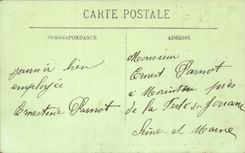 CARTE POSTALE
CORRESPONDANCE
journée bien
employée
Ernestine Parnot
ADRESSE
Monsieur
Ernest Parnot
à près
de la Ferté sous Jouarre
Seine et Marne